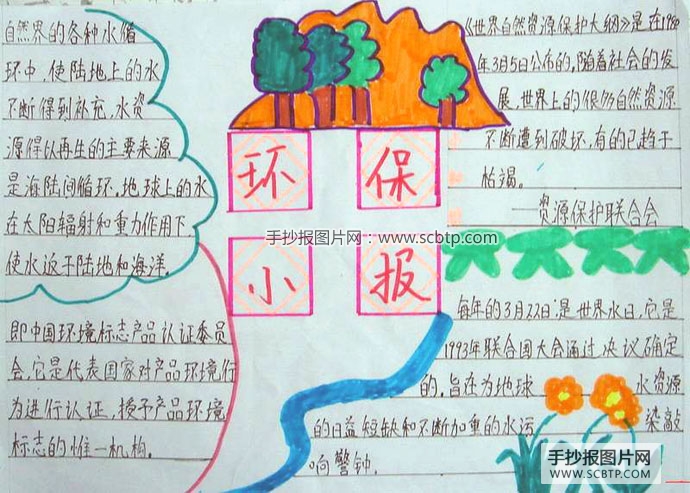 自然界的各种水循
环中,使陆地上的水
不断得到补充,水资
源得以再生的主要来源
是海陆间循环,地球上的水
在太阳辐射和重力作用下
使水返于陆地和海洋。
即中国环境标志产品认证委员
会,它是代表国家对产品环境行
为进行认证,授予产品环境
标志的惟一机构。
环 保
小 报
手抄报图片网:www.scbtp.com
《世界自然资源保护大纲》是在1980
年3月5日公布的,随着社会的发
展,世界上的很多自然资源
不断遭到破坏,有的已趋于
枯竭。
——资源保护联合会
每年的3月22日是世界水日,它是
1993年联合国大会通过决议确定
的,旨在为地球 水资源
的日益短缺和不断加重的水污 染敲
响警钟。
手抄报图片网
SCBTP.COM